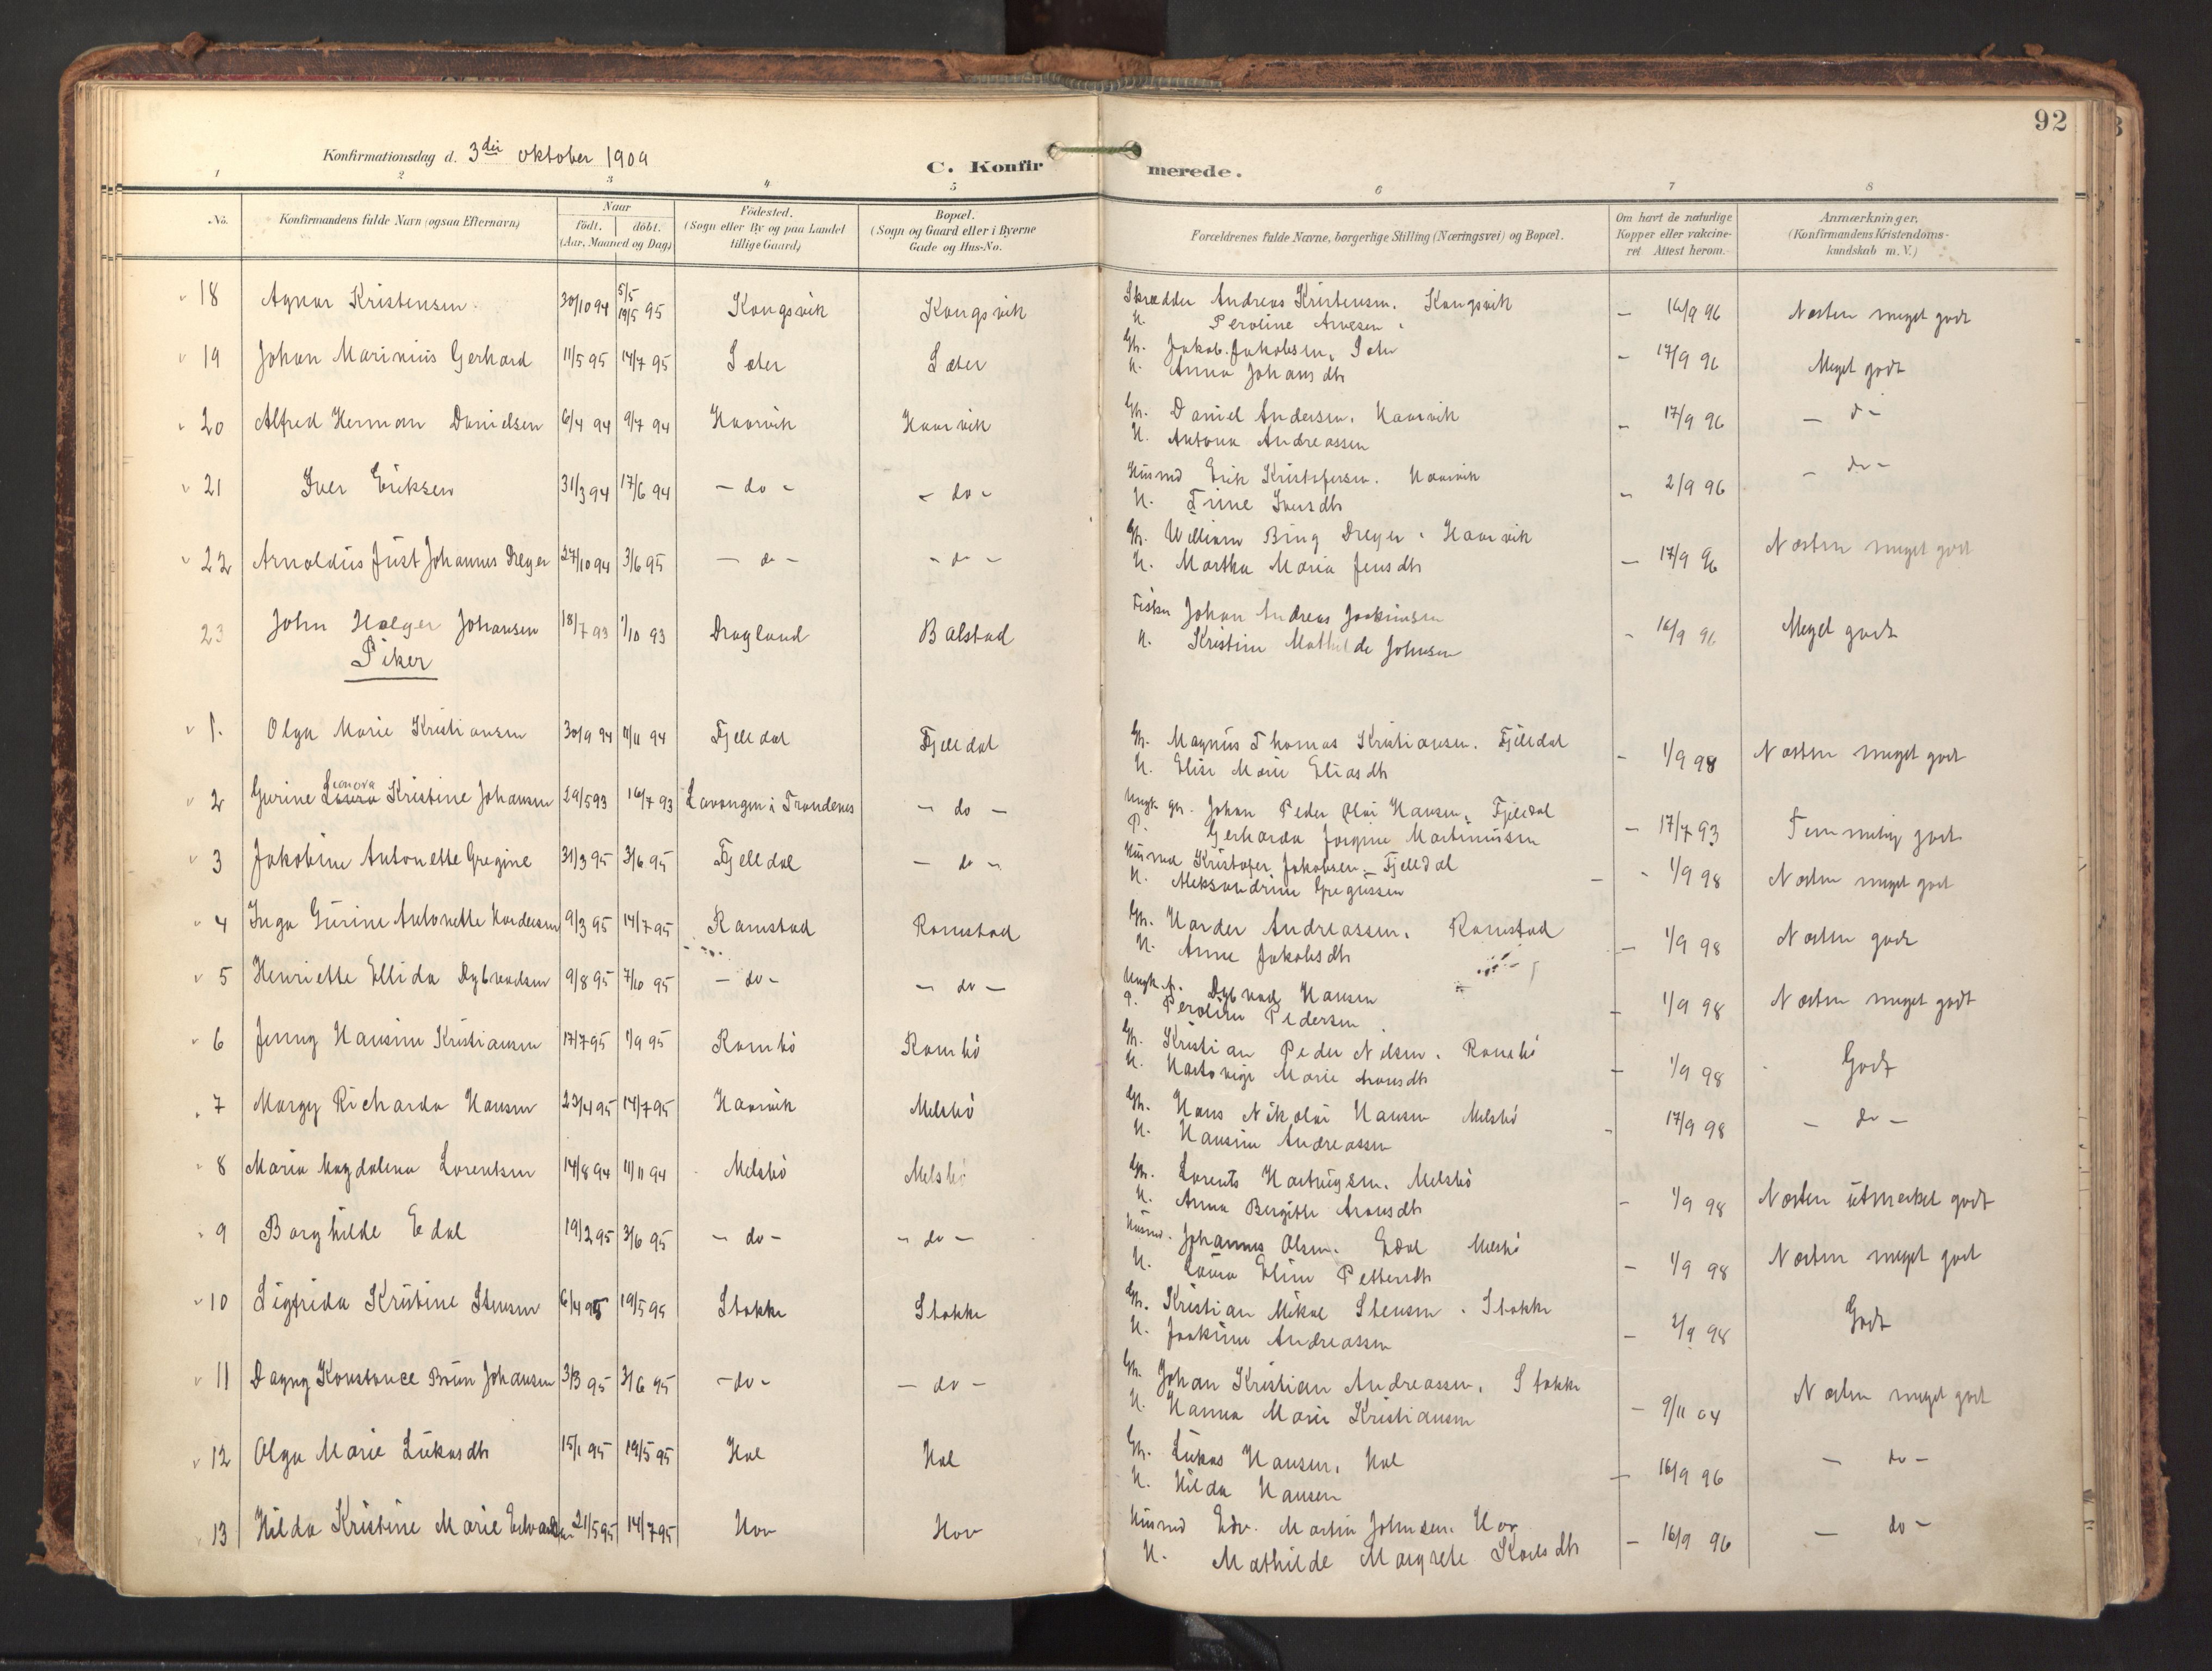 92
Konfirmationsdag d. 3die oktober 1909
C. Konfirmerede.
1 2 3 4 5 6 7 8
No. Konfirmandens fulde Navn (ogsaa Efternavn) Naar födt. döbt. (Aar, Maaned og Dag) Födested. (Sogn eller By og paa Landet tillige Gaard) Bopæl. (Sogn og Gaard eller i Byerne Gade og Hus-No. Forældrenes fulde Navne, borgerlige Stilling (Næringsvei) og Bopæl. Om havt de naturlige Kopper eller vakcineret Attest herom. Anmærkninger. (Konfirmandens Kristendomskundskab m. V.)
18 Agnar Kristensen. 30/10 94 5/5 19/5 95 Kongsvik Kongsvik Skrædder Andreas Kristensen. Kongsvik — 16/9 96 Næsten meget godt
H. Peroline Arnesen.
19 Johan Marinius Gerhard 11/5 95 14/7 95 Sæter Sæter Gbr. Jakob Jakobsen, Sæter — 17/9 96 Meget godt
H. Anna Johansdtr
20 Alfred Herman Danielsen 6/4 94 9/7 94 Haarvik Haarvik Gbr. Daniel Andersen. Haarvik — 17/9 96 — d —
H. Antona Andreassen
21 Iver Eriksen 31/3 94 17/6 94 — do — — do — Husmd Erik Kristofersen. Haarvik — 2/9 96 — do —
H. Trine Iversdtr
22 Arnoldus Just Johannes Dreyer 27/10 94 3/6 95 — do — — do — Gbr. William Bing Dreyer. Haarvik — 17/9 96 Næsten meget godt
H. Martha Maria Jensdtr
23 John Holger Johansen 18/7 93 1/10 93 Dragland Balstad Fisker Johan Andreas Joakimsen — 16/9 96 Meget godt
H. Kristine Mathilde Johnsen
Piker
1. Olga Marie Kristiansen 30/9 94 11/11 94 Fjelldal Fjelldal Gbr. Magnus Thomas Kristiansen. Fjelldal — 1/9 98 Næsten meget godt
H. Elise Marie Eliasdtr
2 Gurine Leonora Kristine Johansen 29/5 93 16/7 93 Lavangen i Trondenes — do — Ungk. gbr. Johan Peder Olai Hansen, Fjelldal — 17/7 93 Temmelig godt
P. Gerharda Jorgine Martinussen
3 Jakobine Antonette Gregine 31/3 95 3/6 95 Fjelldal — do — Husmd Kristofer Jakobsen. Fjelldal — 1/9 98 Næsten meget godt
H. Aleksandrine Gregussen
4 Inga Gurine Antonette Hardersen 9/3 95 14/7 95 Ramstad Ramstad Gbr. Harder Andreassen. Ramstad — 1/9 98 Næsten godt
H. Anne Jakobsdtr
5 Henriette Ellida Dybvadsen 9/8 95 7/10 95 — do — — do — Ungk. f. Dybvad Hansen — 1/9 98 Næsten meget godt
P. Peroline Pedersen
6 Jenny Hansine Kristiansen 17/7 95 1/9 95 Rambö Rambö Gbr. Kristian Peder Nilsen. Rambö — 1/9 98 Godt
H. Hartvige Marie Aronsdtr
7 Margy Richarda Hansen 23/4 95 14/7 95 Haarvik Melsbö Gbr. Hans Nikolai Hansen Melsbö — 17/9 98 — do —
H. Hansine Andreassen
8 Maria Magdalena Lorentsen 14/8 94 11/11 94 Melsbö Melsbö Gbr. Lorents Hartvigsen. Melsbö — 1/9 98 Næsten utmerket godt
H. Anna Bergitte Aronsdtr
9 Borghilde Edal 19/2 95 3/6 95 — do — — do — Husmd. Johannes Olsen. Edal Melsbö — 1/9 98 Næsten meget godt
H. Laura Eline Pettersdtr
10 Sigfrida Kristine Stensen 6/4 95 19/5 95 Stokke Stokke Gbr. Kristian Mikal Stensen. Stokke — 2/9 98 Godt
H. Joakime Andreassen
11 Dagny Konstance Brun Johansen 3/3 95 3/6 95 — do — — do — Gbr. Johan Kristian Andreassen. Stokke — 9/11 04 Næsten meget godt
H. Hanna Marie Kristiansen
12 Olga Marie Lukasdtr 15/1 95 19/5 95 Hol Hol Gbr. Lukas Hansen. Hol — 16/9 96 — do —
H. Hilda Hansen
13 Hilda Kristine Marie Edvardsen 21/5 95 14/7 95 Hov Hov Husmd Edv. Martin Johnsen. Hov — 16/9 96 — do —
H. Mathilde Margrete Karlsdtr